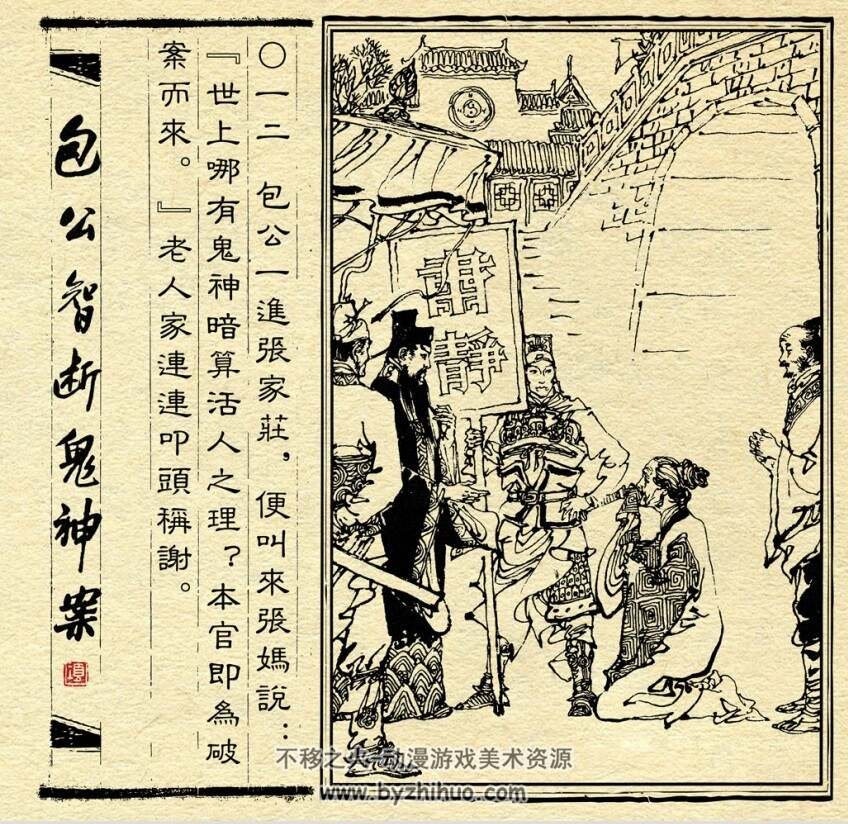 〇一二　包公一進張家莊，便叫來張媽說：
『世上哪有鬼神暗算活人之理？本官即為破
案而來。』老人家連連叩頭稱謝。
包公智断鬼神案
肅靜
不移之火-动漫游戏美术资源
www.byzhihuo.com